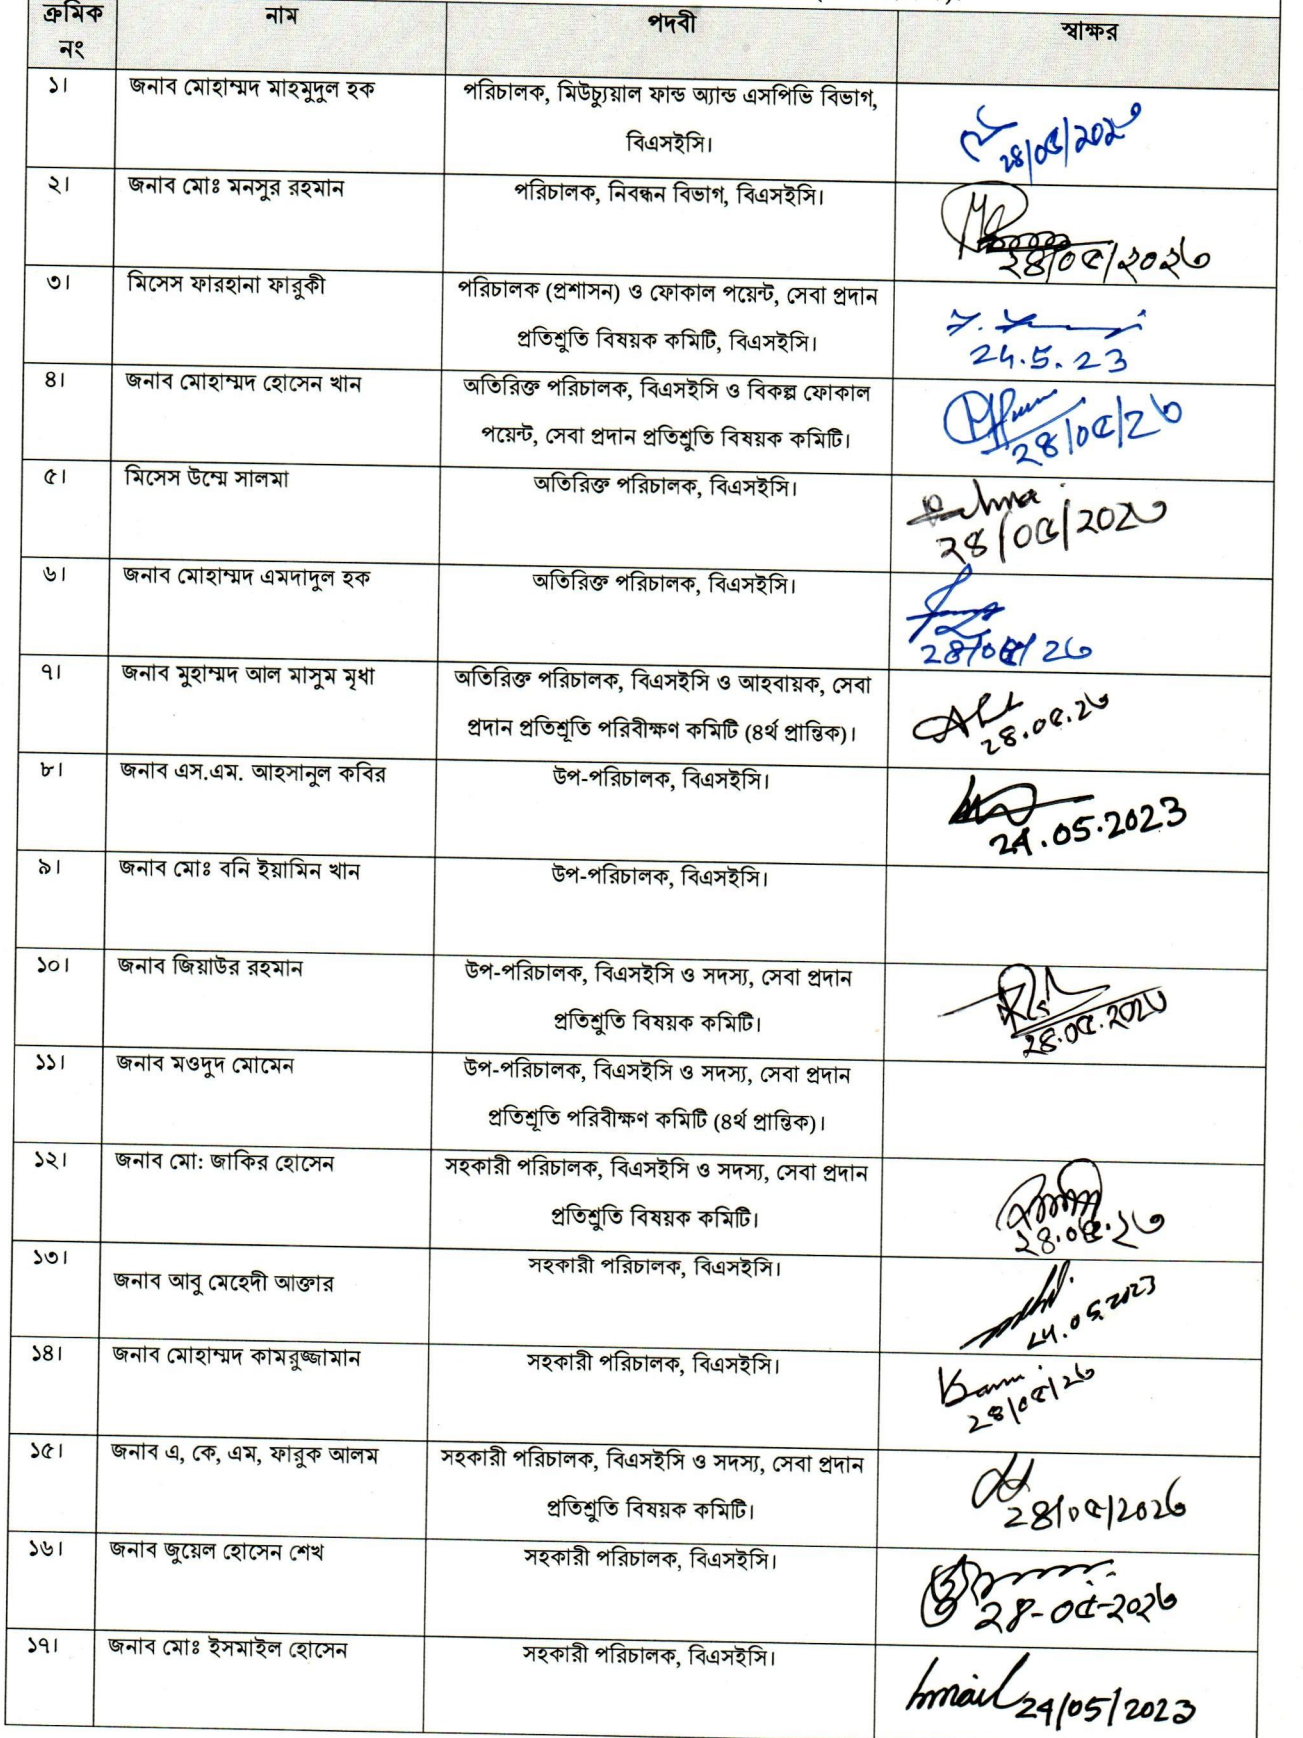 ক্রমিক নং নাম পদবী স্বাক্ষর
১। জনাব মোহাম্মদ মাহমুদুল হক পরিচালক, মিউচ্যুয়াল ফান্ড অ্যান্ড এসপিভি বিভাগ,
বিএসইসি। ২৪/০৫/২০২৩
২। জনাব মোঃ মনসুর রহমান পরিচালক, নিবন্ধন বিভাগ, বিএসইসি।
২৪/০৫/২০২৩
৩। মিসেস ফারহানা ফারুকী পরিচালক (প্রশাসন) ও ফোকাল পয়েন্ট, সেবা প্রদান
প্রতিশ্রুতি বিষয়ক কমিটি, বিএসইসি। 24.5.23
৪। জনাব মোহাম্মদ হোসেন খান অতিরিক্ত পরিচালক, বিএসইসি ও বিকল্প ফোকাল
পয়েন্ট, সেবা প্রদান প্রতিশ্রুতি বিষয়ক কমিটি। ২৪/০৫/২৩
৫। মিসেস উম্মে সালমা অতিরিক্ত পরিচালক, বিএসইসি।
২৪/০৫/২০২৩
৬। জনাব মোহাম্মদ এমদাদুল হক অতিরিক্ত পরিচালক, বিএসইসি।
২৪/০৫/২৩
৭। জনাব মুহাম্মদ আল মাসুম মৃধা অতিরিক্ত পরিচালক, বিএসইসি ও আহবায়ক, সেবা
প্রদান প্রতিশ্রূতি পরিবীক্ষণ কমিটি (৪র্থ প্রান্তিক)। ২৪.০৫.২৩
৮। জনাব এস.এম. আহসানুল কবির উপ-পরিচালক, বিএসইসি।
24.05.2023
৯। জনাব মোঃ বনি ইয়ামিন খান উপ-পরিচালক, বিএসইসি।
১০। জনাব জিয়াউর রহমান উপ-পরিচালক, বিএসইসি ও সদস্য, সেবা প্রদান
প্রতিশ্রুতি বিষয়ক কমিটি। ২৪.০৫.২০২৩
১১। জনাব মওদুদ মোমেন উপ-পরিচালক, বিএসইসি ও সদস্য, সেবা প্রদান
প্রতিশ্রূতি পরিবীক্ষণ কমিটি (৪র্থ প্রান্তিক)।
১২। জনাব মো: জাকির হোসেন সহকারী পরিচালক, বিএসইসি ও সদস্য, সেবা প্রদান
প্রতিশ্রুতি বিষয়ক কমিটি। ২৪.০৫.২৩
১৩। জনাব আবু মেহেদী আক্তার সহকারী পরিচালক, বিএসইসি।
24.05.2023
১৪। জনাব মোহাম্মদ কামরুজ্জামান সহকারী পরিচালক, বিএসইসি।
২৪/০৫/২৩
১৫। জনাব এ, কে, এম, ফারুক আলম সহকারী পরিচালক, বিএসইসি ও সদস্য, সেবা প্রদান
প্রতিশ্রুতি বিষয়ক কমিটি। ২৪/০৫/২০২৩
১৬। জনাব জুয়েল হোসেন শেখ সহকারী পরিচালক, বিএসইসি।
২৪-০৫-২০২৩
১৭। জনাব মোঃ ইসমাইল হোসেন সহকারী পরিচালক, বিএসইসি।
Ismail 24/05/2023